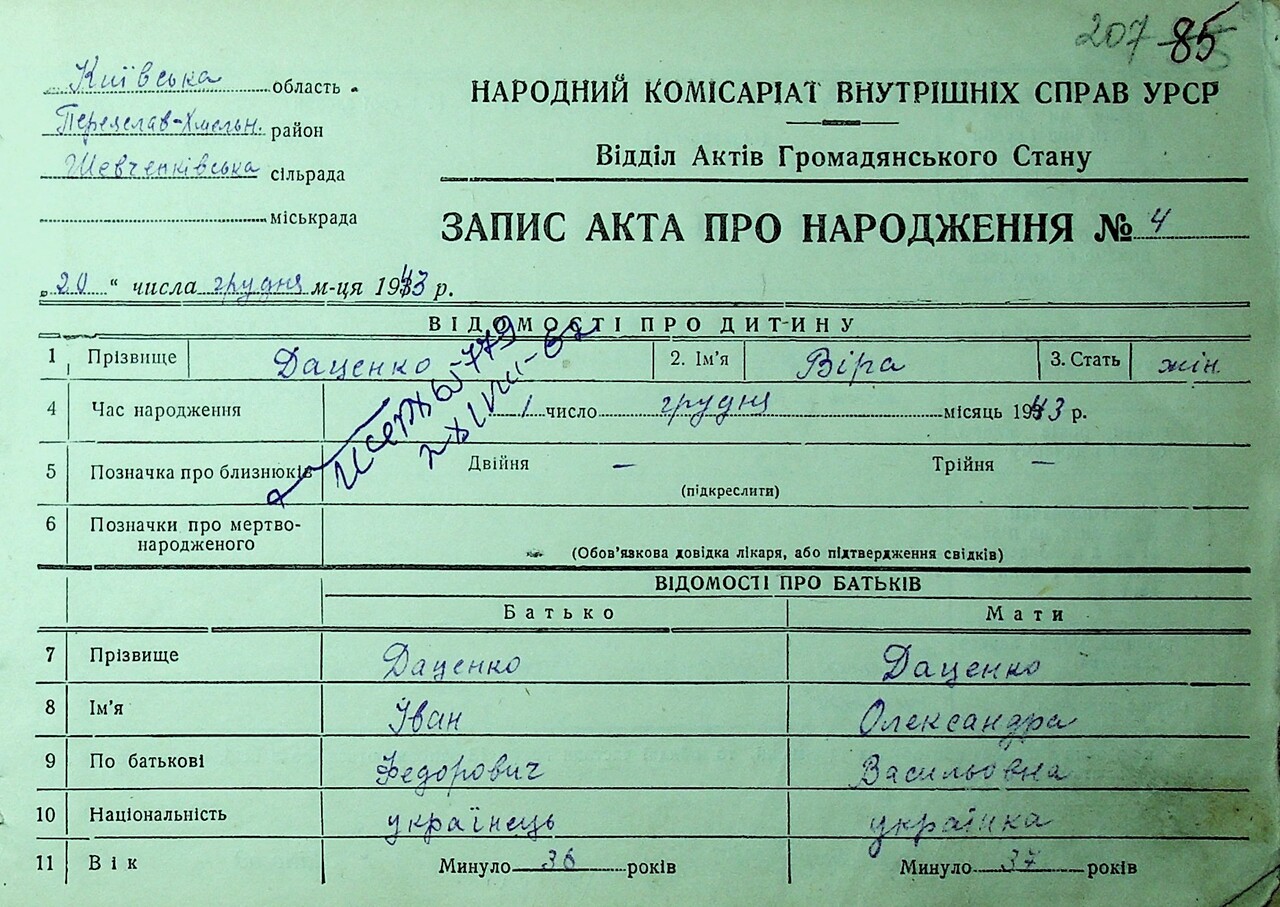 207 85
Київська область
Переяслав-Хмельн. район
Шевченківська сільрада
міськрада
НАРОДНИЙ КОМІСАРІАТ ВНУТРІШНІХ СПРАВ УРСР
Відділ Актів Громадянського Стану
ЗАПИС АКТА ПРО НАРОДЖЕННЯ № 4
„20“ числа грудня м-ця 1943 р.
ВІДОМОСТІ ПРО ДИТИНУ
1 Прізвище Даценко 2. Ім'я Віра 3. Стать жін.
4 Час народження 1 число грудня місяць 1943 р.
5 Позначка про близнюків Двійня — Трійня —
(підкреслити)
6 Позначки про мертво-
народженого
(Обов'язкова довідка лікаря, або підтвердження свідків)
ВІДОМОСТІ ПРО БАТЬКІВ
Батько Мати
7 Прізвище Даценко Даценко
8 Ім'я Іван Олександра
9 По батькові Федорович Васильовна
10 Національність українець українка
11 Вік Минуло 36 років Минуло 37 років